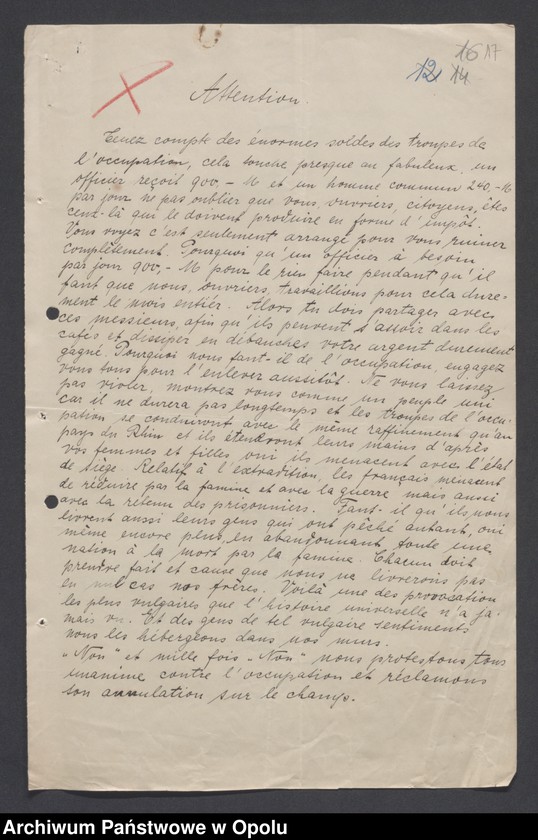 16 17
12 14
Attention.
Tenez compte des énormes soldes des troupes de
l'occupation, cela touche presque au fabuleux, un
officier reçoit 900,- M et un homme commun 240,- M
par jour ne pas oublier que vous, ouvriers, citoyens, êtes
ceux-là qui le doivent produire en forme d'impôt.
Vous voyez c'est seulement arrangé pour vous ruiner
complètement. Pourquoi qu'un officier à besoin
par jour 900,- M pour le rien faire pendant qu'il
faut que nous, ouvriers, travaillions pour cela dure-
ment le mois entiér. Alors tu dois partager avec
ces messieurs, afin qu'ils peuvent s'asseoir dans les
cafés et dissiper en débauches votre argent durement
gagné. Pourquoi nous faut-il de l'occupation, engagez
vous tous pour l'enlever aussitôt. Ne vous laissez
pas violer, montrez vous comme un peuple uni
car il ne durera pas longtemps et les troupes de l'occu-
pation se conduiront avec le même raffinement qu'au
pays du Rhin et ils étendront leurs mains d'après
vos femmes et filles oui ils menacent avec l'état
de siège. Relatif à l'extradition, les français menacent
de réduire par la famine et avec la guerre mais aussi
avec la retenu des prisonniers. Faut-il qu'ils nous
livrent aussi leurs gens qui ont pêché autant, oui
même encore plus, en abandonnant toute une
nation à la mort par la famine. Chacun doit
prendre fait et cause que nous ne livrerons pas
en nul cas nos frères. Voilà une des provocation
les plus vulgaires que l'histoire universelle n'a ja-
mais vu. Et des gens de tel vulgaire sentiments
nous les hébergeons dans nos murs.
„Non" et mille fois „Non" nous protestons tous
unanime contre l'occupation et réclamons
son annulation sur le champ.
Archiwum Państwowe w Opolu